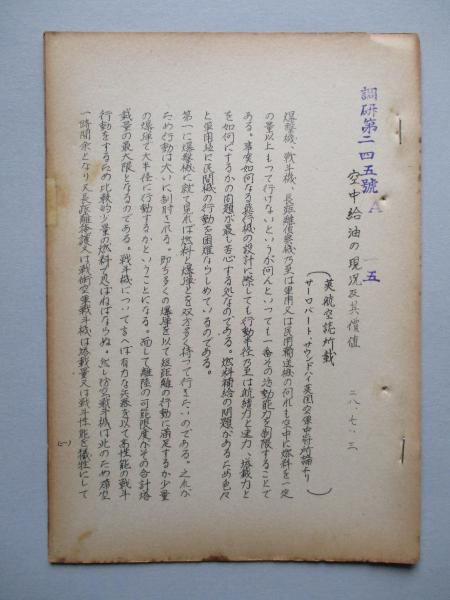 調研第二四五號A
一五
空中給油の現況及其價値
二八・七・三
(英航空誌所載
サー・ロバート・サウンドバイ英国空軍中将所論より)
爆撃機、戦斗機、長距離偵察機乃至は軍用又は民間輸送機の何れも空中に燃料を一定
の量以上もつて行けないというが何んといつても一番その活動能力を制限することで
ある。事実如何なる飛行機の設計に際しても行動半径乃至は航続力と速力、塔載力と
を如何にするかの問題が最も苦心する処なのである。燃料補給の問題があるため色々
と軍用並に民間機の行動を困難ならしめているのである。
第一に爆撃機に就て見れば燃料と爆弾とを双方多く持つて行きたいのである。之れが
ため行動は大いに制肘される。即ち多くの爆弾を以て短距離の行動に満足するか少量
の爆弾で大半径に行動するかということになる。而して離陸の可能限度がその合計塔
載量の最大限となるのである。戦斗機について言へば有力な兵装を以て高性能の戦斗
行動をするため比較的少量の燃料で忍ばねばならぬ。然し防空戦斗機は此のため滞空
一時間余となり又長距離援護又は戦術空軍戦斗機は塔載量又は戦斗性能を犠牲にして
(一)